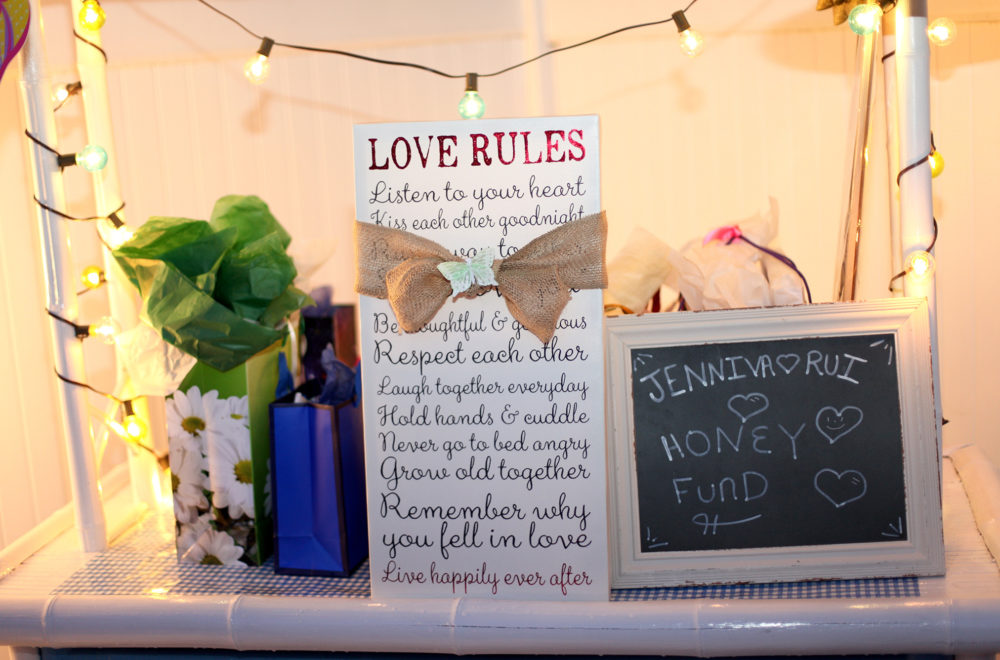 LOVE RULES
Listen to your heart
Kiss each other goodnight
Be thoughtful & generous
Respect each other
Laugh together everyday
Hold hands & cuddle
Never go to bed angry
Grow old together
Remember why
you fell in love
Live happily ever after
JENNIVA♡RUI
HONEY
FUND